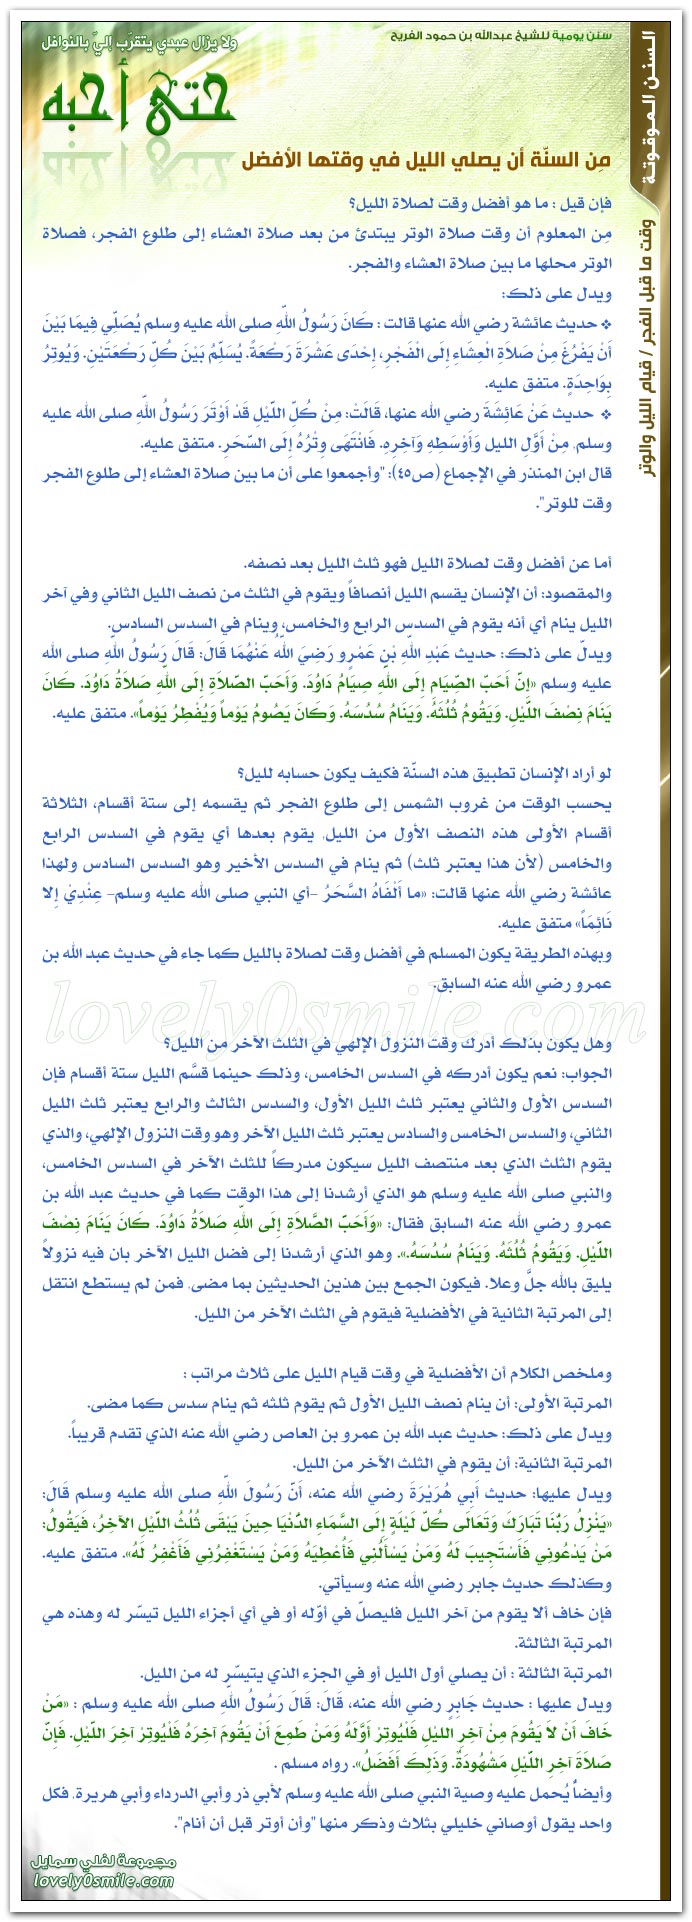 ولا يزال عبدي يتقرّب إليّ بالنوافل
حتى أحبه
سنن يومية للشيخ عبدالله بن حمود الفريح
السنن الموقوتة
وقت ما قبل الفجر / قيام الليل والوتر
مِن السنّة أن يصلي الليل في وقتها الأفضل
فإن قيل : ما هو أفضل وقت لصلاة الليل؟
مِن المعلوم أن وقت صلاة الوتر يبتدئ من بعد صلاة العشاء إلى طلوع الفجر، فصلاة
الوتر محلها ما بين صلاة العشاء والفجر.
ويدل على ذلك:
❖ حديث عائشة رضي الله عنها قالت : كَانَ رَسُولُ اللّهِ صلى الله عليه وسلم يُصَلِّي فِيمَا بَيْنَ
أَنْ يَفْرُغَ مِنْ صَلاَةِ الْعِشَاءِ إِلَى الْفَجْرِ، إِحْدَى عَشْرَةَ رَكْعَةً. يُسَلِّمُ بَيْنَ كُلِّ رَكْعَتَيْنِ. وَيُوتِرُ
بِوَاحِدَةٍ. متفق عليه.
❖ حديث عَنْ عَائِشَةَ رضي الله عنها، قَالَتْ: مِنْ كُلِّ اللَّيْلِ قَدْ أَوْتَرَ رَسُولُ اللّهِ صلى الله عليه
وسلم، مِنْ أَوَّلِ الليل وَأَوْسَطِهِ وَآخِرِهِ. فَانْتَهَى وِتْرُهُ إِلَى السَّحَرِ. متفق عليه.
قال ابن المنذر في الإجماع (ص٤٥): "وأجمعوا على أن ما بين صلاة العشاء إلى طلوع الفجر
وقت للوتر".
أما عن أفضل وقت لصلاة الليل فهو ثلث الليل بعد نصفه.
والمقصود: أن الإنسان يقسم الليل أنصافاً ويقوم في الثلث من نصف الليل الثاني وفي آخر
الليل ينام أي أنه يقوم في السدس الرابع والخامس، وينام في السدس السادس.
ويدلّ على ذلك: حديث عَبْدِ اللّهِ بْنِ عَمْرٍو رَضِيَ اللّهُ عَنْهُمَا قَالَ: قَالَ رَسُولُ اللّهِ صلى الله
عليه وسلم «إِنَّ أَحَبَّ الصِّيَامِ إِلَى اللّهِ صِيَامُ دَاوُدَ. وَأَحَبَّ الصَّلاَةِ إِلَى اللّهِ صَلاَةُ دَاوُدَ. كَانَ
يَنَامُ نِصْفَ اللَّيْلِ. وَيَقُومُ ثُلُثَهُ. وَيَنَامُ سُدُسَهُ. وَكَانَ يَصُومُ يَوْماً وَيُفْطِرُ يَوْماً». متفق عليه.
لو أراد الإنسان تطبيق هذه السنّة فكيف يكون حسابه لليل؟
يحسب الوقت من غروب الشمس إلى طلوع الفجر ثم يقسمه إلى ستة أقسام، الثلاثة
أقسام الأولى هذه النصف الأول من الليل، يقوم بعدها أي يقوم في السدس الرابع
والخامس (لأن هذا يعتبر ثلث) ثم ينام في السدس الأخير وهو السدس السادس ولهذا
عائشة رضي الله عنها قالت: «ما أَلْفَاهُ السَّحَرُ –أي النبي صلى الله عليه وسلم– عِنْدِيَ إِلا
نَائِمَاً» متفق عليه.
وبهذه الطريقة يكون المسلم في أفضل وقت لصلاة بالليل كما جاء في حديث عبد الله بن
عمرو رضي الله عنه السابق.
lovely0smile.com
وهل يكون بذلك أدرك وقت النزول الإلهي في الثلث الآخر من الليل؟
الجواب: نعم يكون أدركه في السدس الخامس، وذلك حينما قسَّم الليل ستة أقسام فإن
السدس الأول والثاني يعتبر ثلث الليل الأول، والسدس الثالث والرابع يعتبر ثلث الليل
الثاني، والسدس الخامس والسادس يعتبر ثلث الليل الآخر وهو وقت النزول الإلهي، والذي
يقوم الثلث الذي بعد منتصف الليل سيكون مدركاً للثلث الآخر في السدس الخامس،
والنبي صلى الله عليه وسلم هو الذي أرشدنا إلى هذا الوقت كما في حديث عبد الله بن
عمرو رضي الله عنه السابق فقال: «وَأَحَبَّ الصَّلاَةِ إِلَى اللّهِ صَلاَةُ دَاوُدَ. كَانَ يَنَامُ نِصْفَ
اللَّيْلِ. وَيَقُومُ ثُلُثَهُ. وَيَنَامُ سُدُسَهُ.». وهو الذي أرشدنا إلى فضل الليل الآخر بان فيه نزولاً
يليق بالله جلَّ وعلا. فيكون الجمع بين هذين الحديثين بما مضى، فمن لم يستطع انتقل
إلى المرتبة الثانية في الأفضلية فيقوم في الثلث الآخر من الليل.
وملخص الكلام أن الأفضلية في وقت قيام الليل على ثلاث مراتب :
المرتبة الأولى: أن ينام نصف الليل الأول ثم يقوم ثلثه ثم ينام سدس كما مضى.
ويدل على ذلك: حديث عبد الله بن عمرو بن العاص رضي الله عنه الذي تقدم قريباً.
المرتبة الثانية: أن يقوم في الثلث الآخر من الليل.
ويدل عليها: حديث أَبِي هُرَيْرَةَ رضي الله عنه، أَنَّ رَسُولَ اللّهِ صلى الله عليه وسلم قَالَ:
«يَنْزِلُ رَبُّنَا تَبَارَكَ وَتَعَالَى كُلَّ لَيْلَةٍ إِلَى السَّمَاءِ الدُّنْيَا حِينَ يَبْقَى ثُلُثُ اللَّيْلِ الآخِرُ، فَيَقُولُ:
مَنْ يَدْعُونِي فَأَسْتَجِيبَ لَهُ وَمَنْ يَسْأَلُنِي فَأُعْطِيَهُ وَمَنْ يَسْتَغْفِرُنِي فَأَغْفِرُ لَهُ». متفق عليه.
وكذلك حديث جابر رضي الله عنه وسيأتي.
فإن خاف ألا يقوم من آخر الليل فليصلّ في أوّله أو في أي أجزاء الليل تيسّر له وهذه هي
المرتبة الثالثة.
المرتبة الثالثة : أن يصلي أول الليل أو في الجزء الذي يتيسّر له من الليل.
ويدل عليها : حديث جَابِرٍ رضي الله عنه، قَالَ: قَالَ رَسُولُ اللّهِ صلى الله عليه وسلم : «مَنْ
خَافَ أَنْ لاَ يَقُومَ مِنْ آخِرِ اللَّيْلِ فَلْيُوتِرْ أَوَّلَهُ وَمَنْ طَمِعَ أَنْ يَقُومَ آخِرَهُ فَلْيُوتِرْ آخِرَ اللَّيْلِ. فَإِنَّ
صَلاَةَ آخِرِ اللَّيْلِ مَشْهُودَةٌ. وَذَلِكَ أَفْضَلُ». رواه مسلم .
وأيضاً يُحمل عليه وصية النبي صلى الله عليه وسلم لأبي ذر وأبي الدرداء وأبي هريرة، فكل
واحد يقول أوصاني خليلي بثلاث وذكر منها "وأن أوتر قبل أن أنام".
مجموعة لفلي سمايل
lovely0smile.com